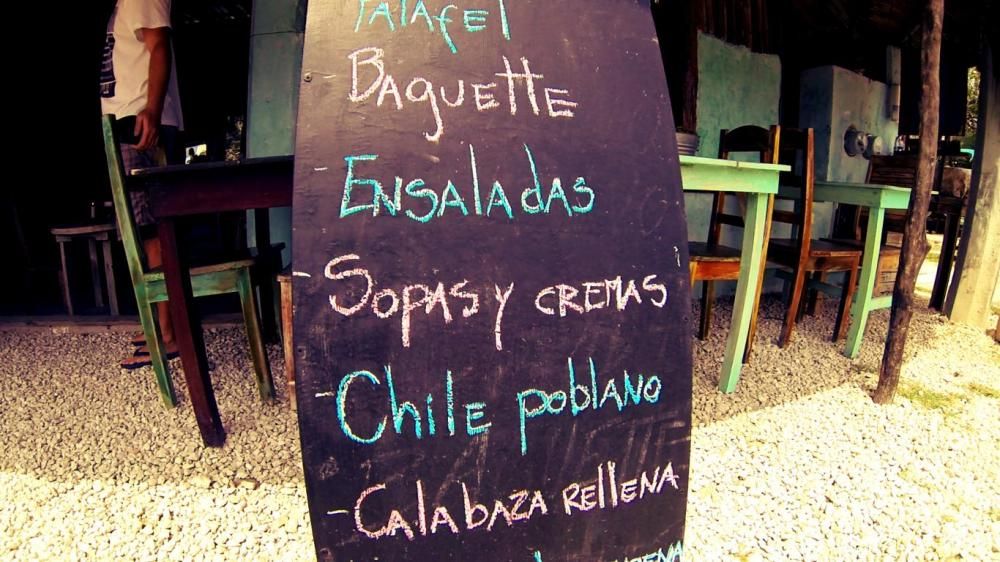 Falafel
Baguette
- Ensaladas
- Sopas y cremas
- Chile poblano
- Calabaza rellena